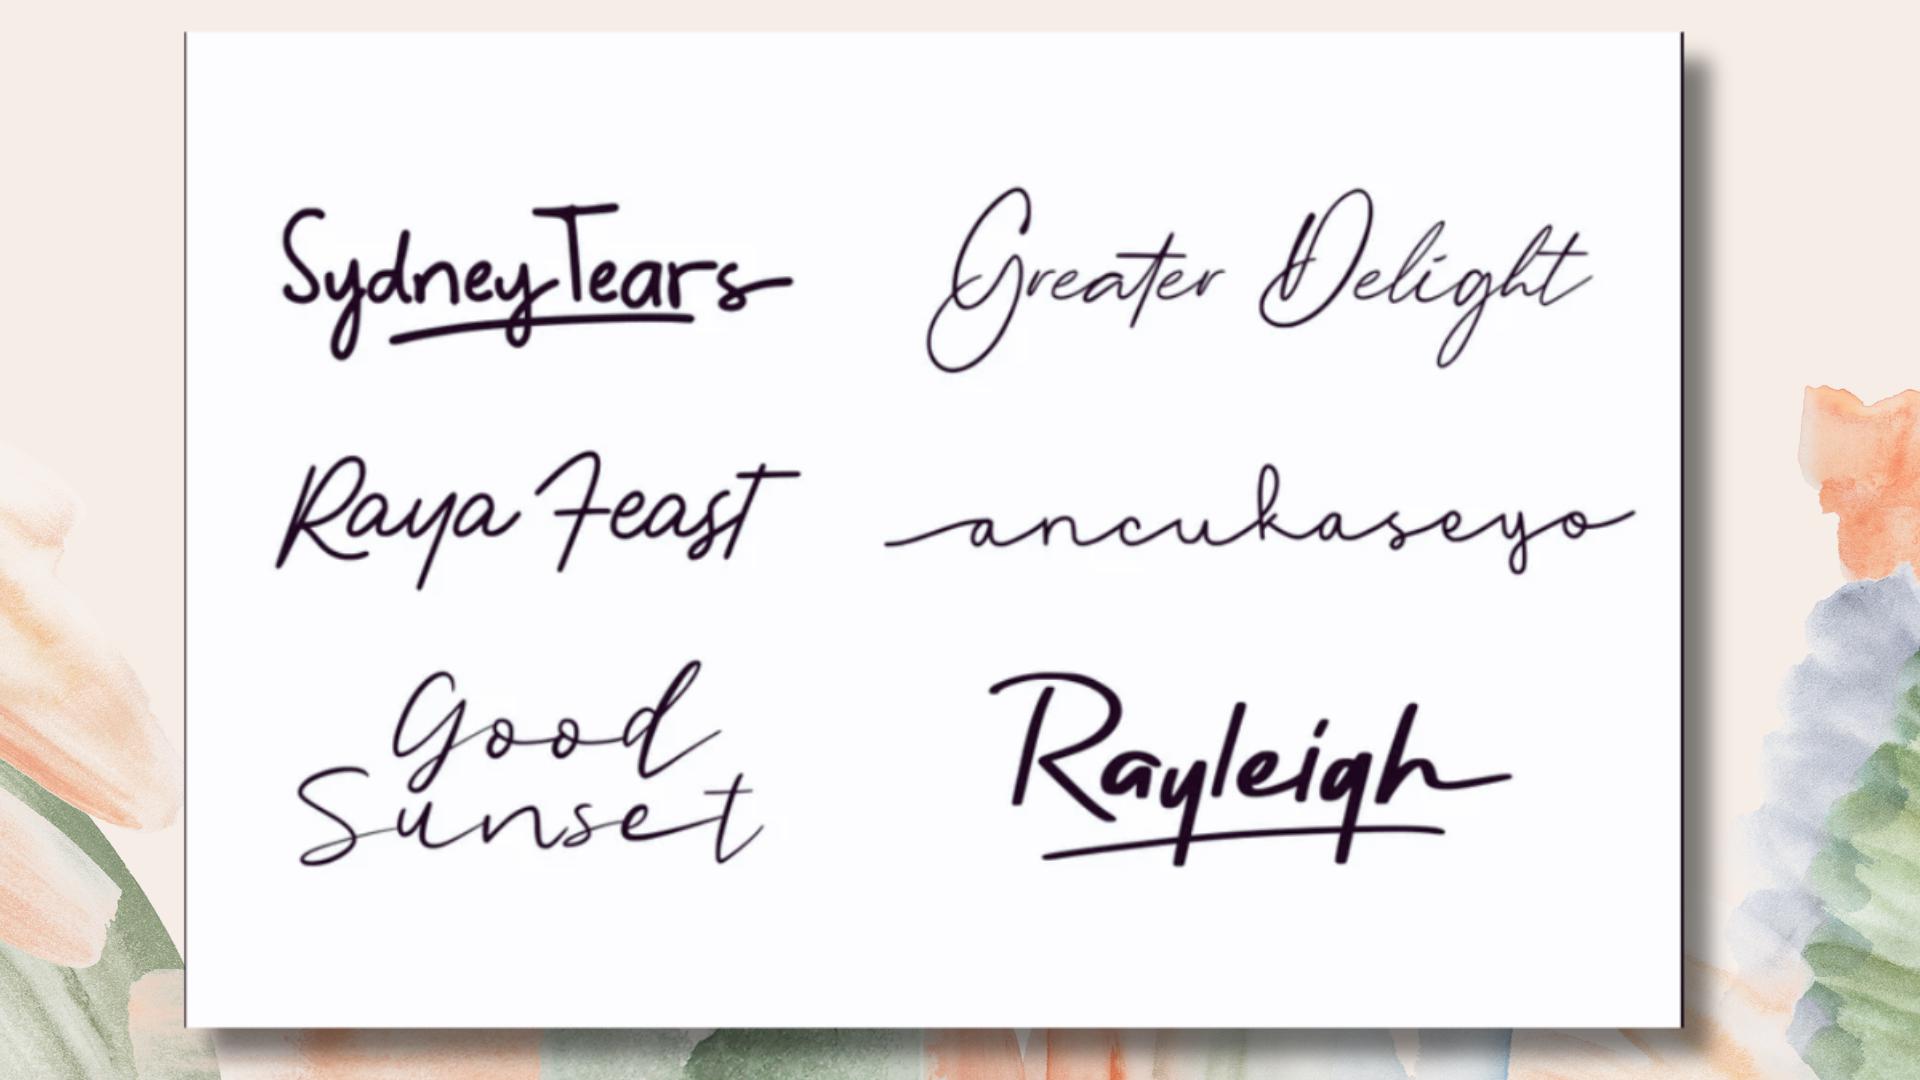 Sydney Tears
Greater Delight
Raya Feast
ancukaseyo
Good
Sunset
Rayleigh